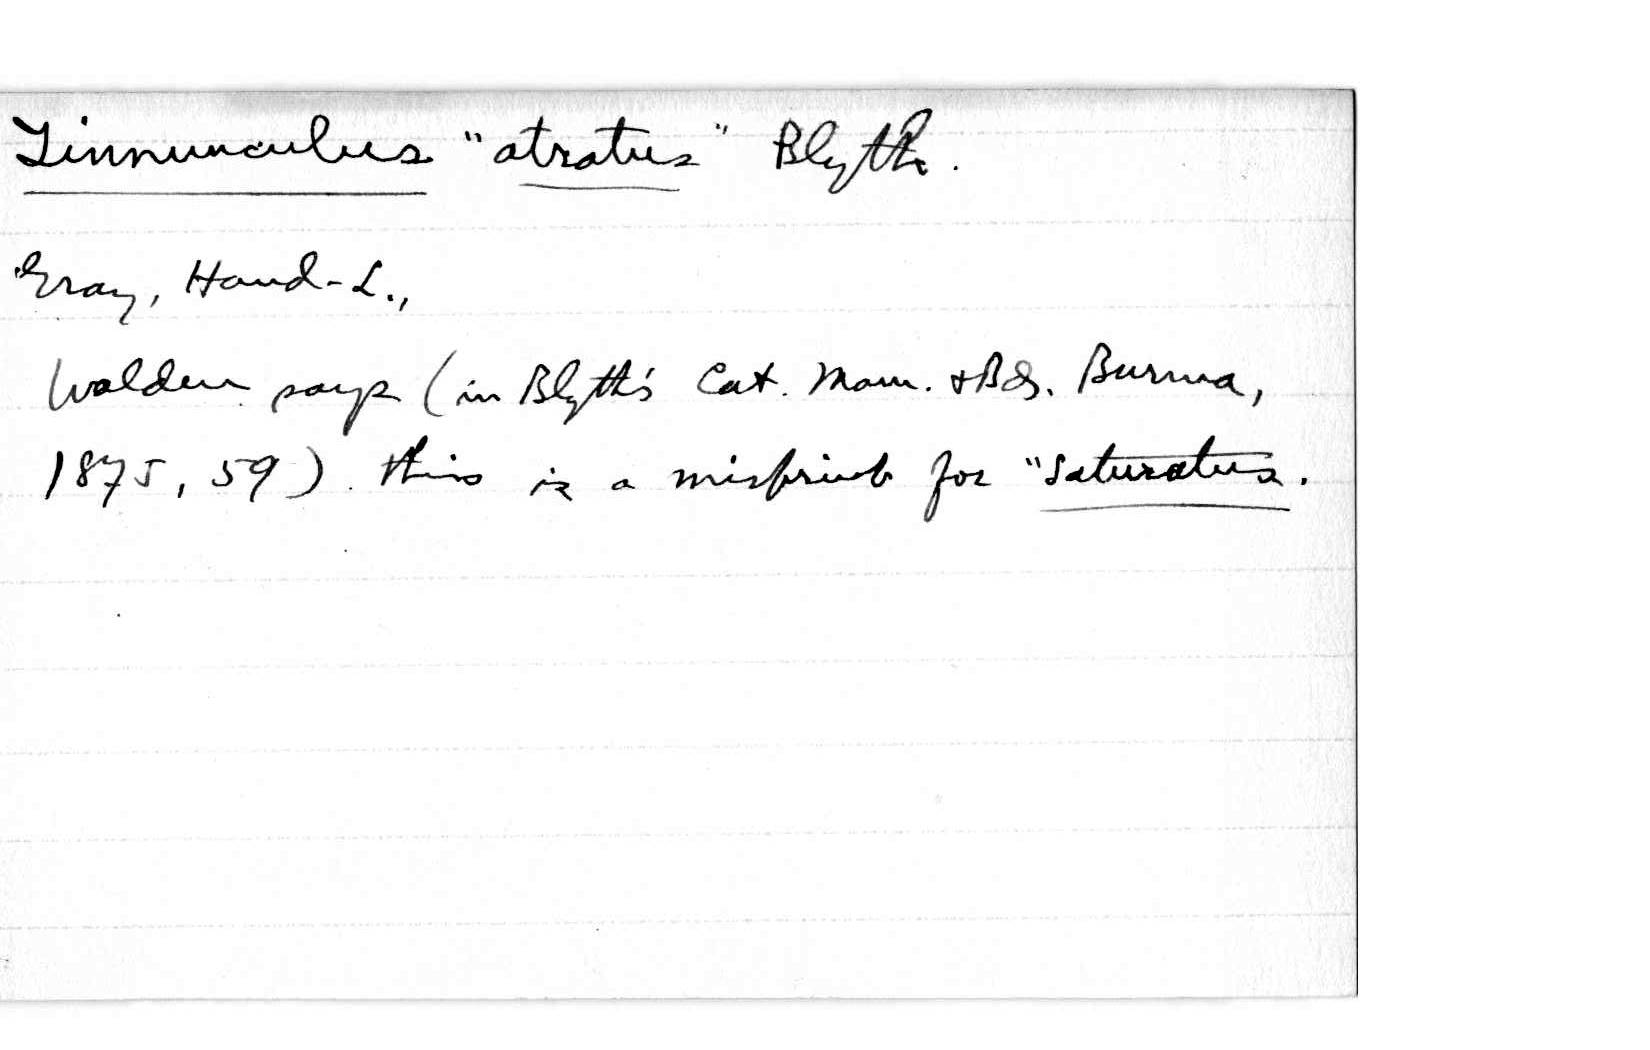 Tinnunculus "atratus" Blyth.
Gray, Hand-L.,
Walden says (in Blyth's Cat. Mam. & Bds. Burma,
1875, 59) this is a misprint for "saturatus.